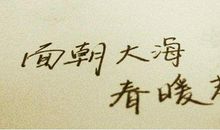 面朝大海
春暖